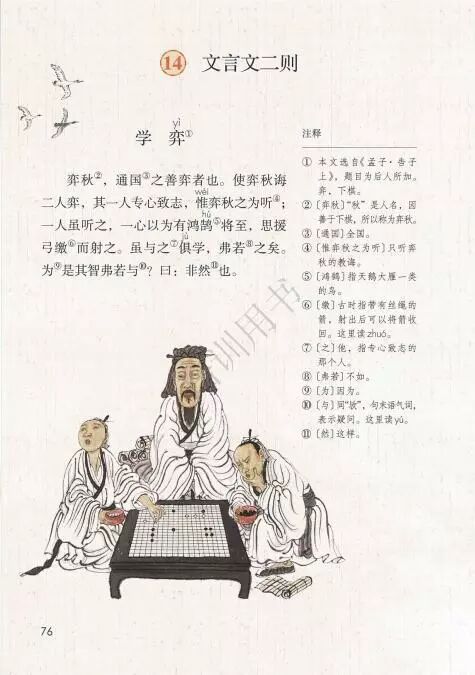 14 文言文二则
yì
学 弈①
弈秋②，通国③之善弈者也。使弈秋诲
wéi
二人弈，其一人专心致志，惟弈秋之为听④；
hú
一人虽听之，一心以为有鸿鹄⑤将至，思援
jù
弓缴⑥而射之。虽与之⑦俱学，弗若⑧之矣。
为⑨是其智弗若与⑩？曰：非然⑪也。
注释
① 本文选自《孟子·告子
上》，题目为后人所加。
弈，下棋。
② [弈秋]“秋”是人名，因
善于下棋，所以称为弈秋。
③ [通国]全国。
④ [惟弈秋之为听]只听弈
秋的教诲。
⑤ [鸿鹄]指天鹅大雁一类
的鸟。
⑥ [缴]古时指带有丝绳的
箭，射出后可以将箭收
回。这里读zhuó。
⑦ [之]他，指专心致志的
那个人。
⑧ [弗若]不如。
⑨ [为]因为。
⑩ [与]同“欤”，句末语气词，
表示疑问。这里读yú。
⑪ [然]这样。
训用书
76